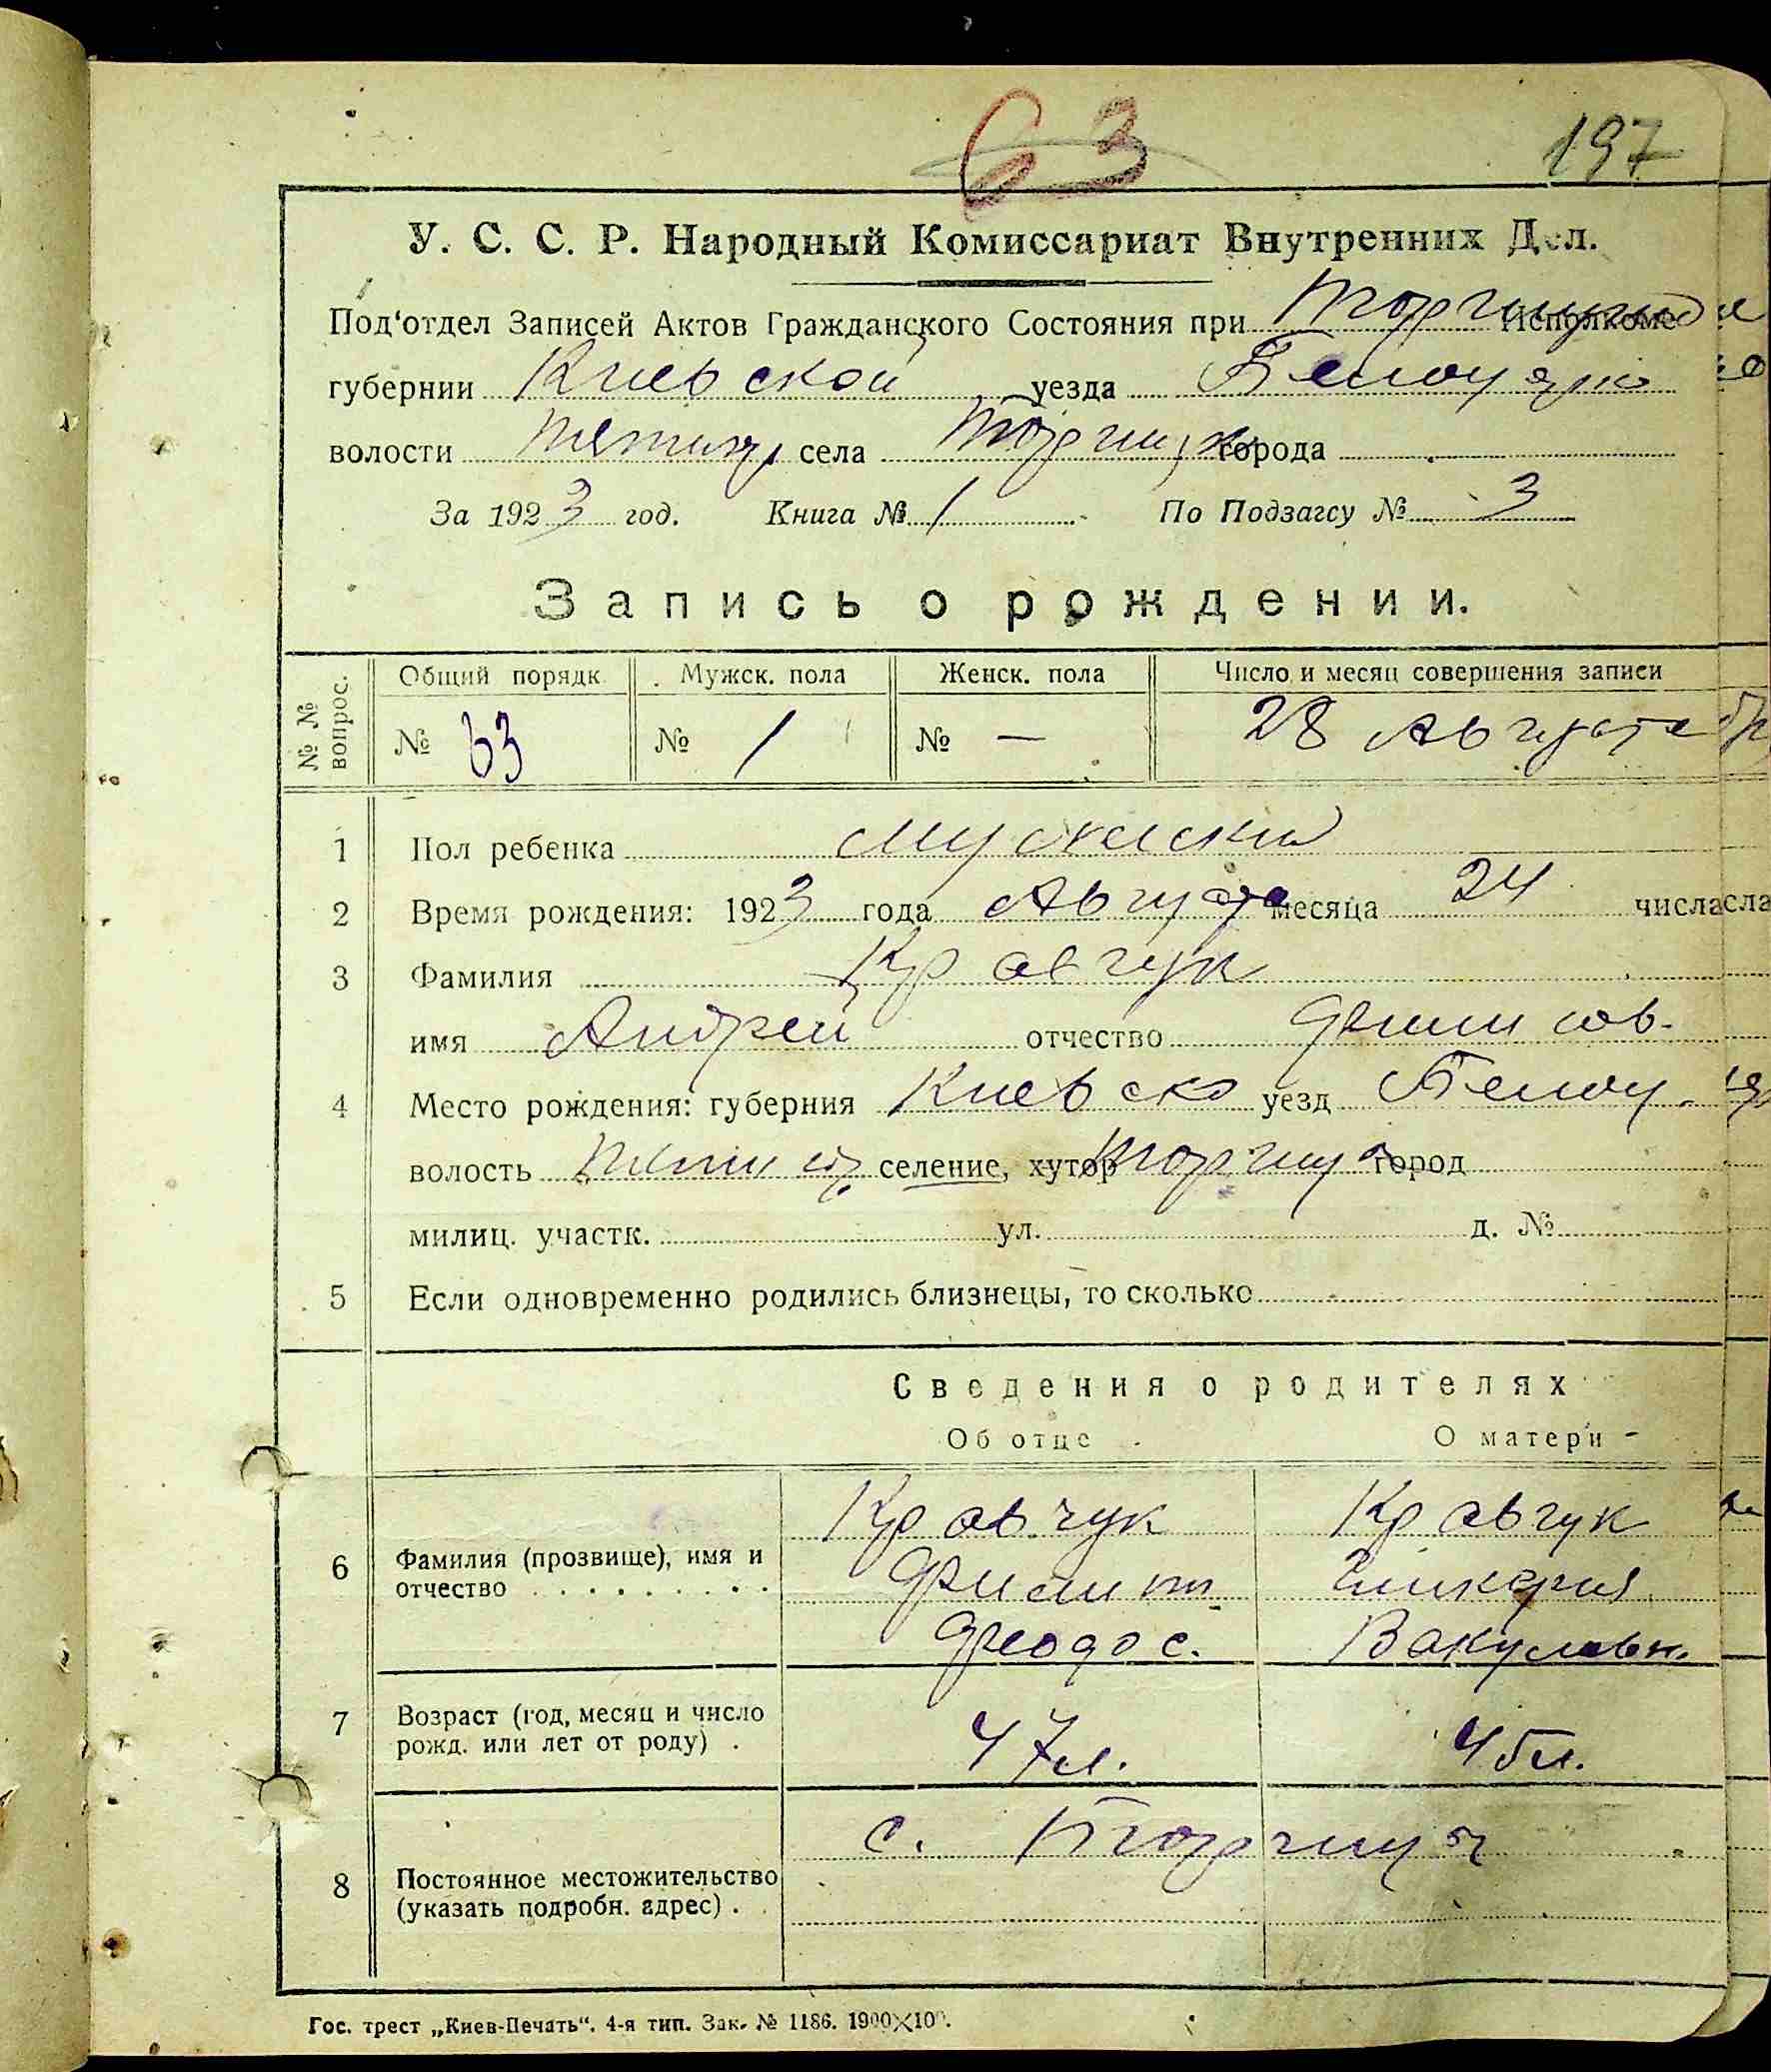 63
197
У. С. С. Р. Народный Комиссариат Внутренних Дел.
Под‘отдел Записей Актов Гражданского Состояния при Исполкоме
губернии Киевской уезда Белоц
волости села города
За 1923 год. Книга № 1 По Подзагсу № 3
Запись о рождении.
№ № вопрос.
Общий порядк. Мужск. пола Женск. пола Число и месяц совершения записи
№ 63 № 1 № — 28 Августа
1 Пол ребенка мужеский
2 Время рождения: 1923 года Августа месяца 24 числа
3 Фамилия Кравчук
имя Андрей отчество Филипов.
4 Место рождения: губерния Киевско уезд Белоц.
волость селение, хутор город
милиц. участк. ул. д. №
5 Если одновременно родились близнецы, то сколько
Сведения о родителях
Об отце О матери
Кравчук Кравчук
6 Фамилия (прозвище), имя и отчество Филипп Гликерия
Феодос. Вакуловн.
7 Возраст (год, месяц и число рожд. или лет от роду) 47 л. 45 л.
с.
8 Постоянное местожительство (указать подробн. адрес)
Гос. трест „Киев-Печать“. 4-я тип. Зак. № 1186. 1900×100.